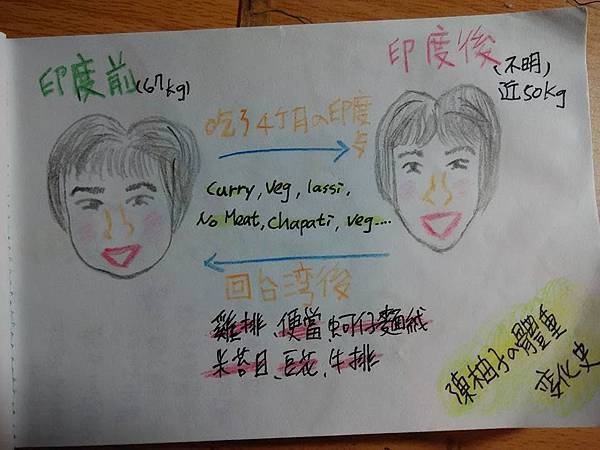 印度前(67kg)
印度後(不明)
近50kg
吃了4個月の印度
Curry, veg, lassi,
No Meat, Chapati, veg....
回台湾後
雞排、便當、蚵仔麵線
米苔目、豆花、牛排
陳柚子の體重
變化史